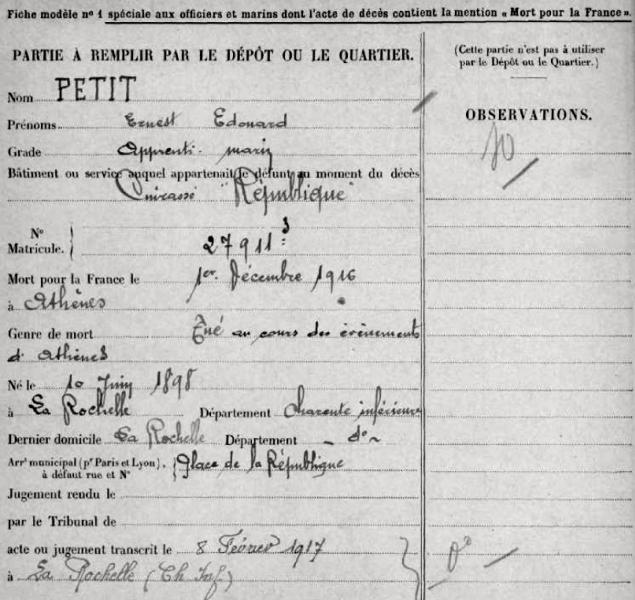 Fiche modèle n° 1 spéciale aux officiers et marins dont l'acte de décès contient la mention « Mort pour la France ».
PARTIE À REMPLIR PAR LE DÉPÔT OU LE QUARTIER.
Nom PETIT
Prénoms Ernest Edouard
Grade Apprenti-marin
Bâtiment ou service auquel appartenait le défunt au moment du décès
Cuirassé "République"
N°
Matricule. 27911 3
Mort pour la France le 1er Décembre 1916
à Athènes
Genre de mort Tué au cours des évènements
d'Athènes
Né le 10 Juin 1898
à La Rochelle Département Charente inférieure
Dernier domicile La Rochelle Département - d° -
Arrt municipal (pr Paris et Lyon),
à défaut rue et N° Place de la République
Jugement rendu le
par le Tribunal de
acte ou jugement transcrit le 8 Février 1917
à La Rochelle (Ch Inf.)
(Cette partie n'est pas à utiliser
par le Dépôt ou le Quartier.)
OBSERVATIONS.